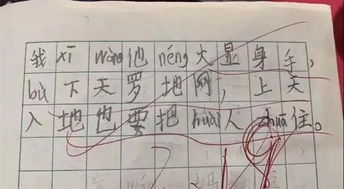 我xīwàng他néng大显身手,
bù下天罗地网,上天
入地也要把huài人zhuā住。